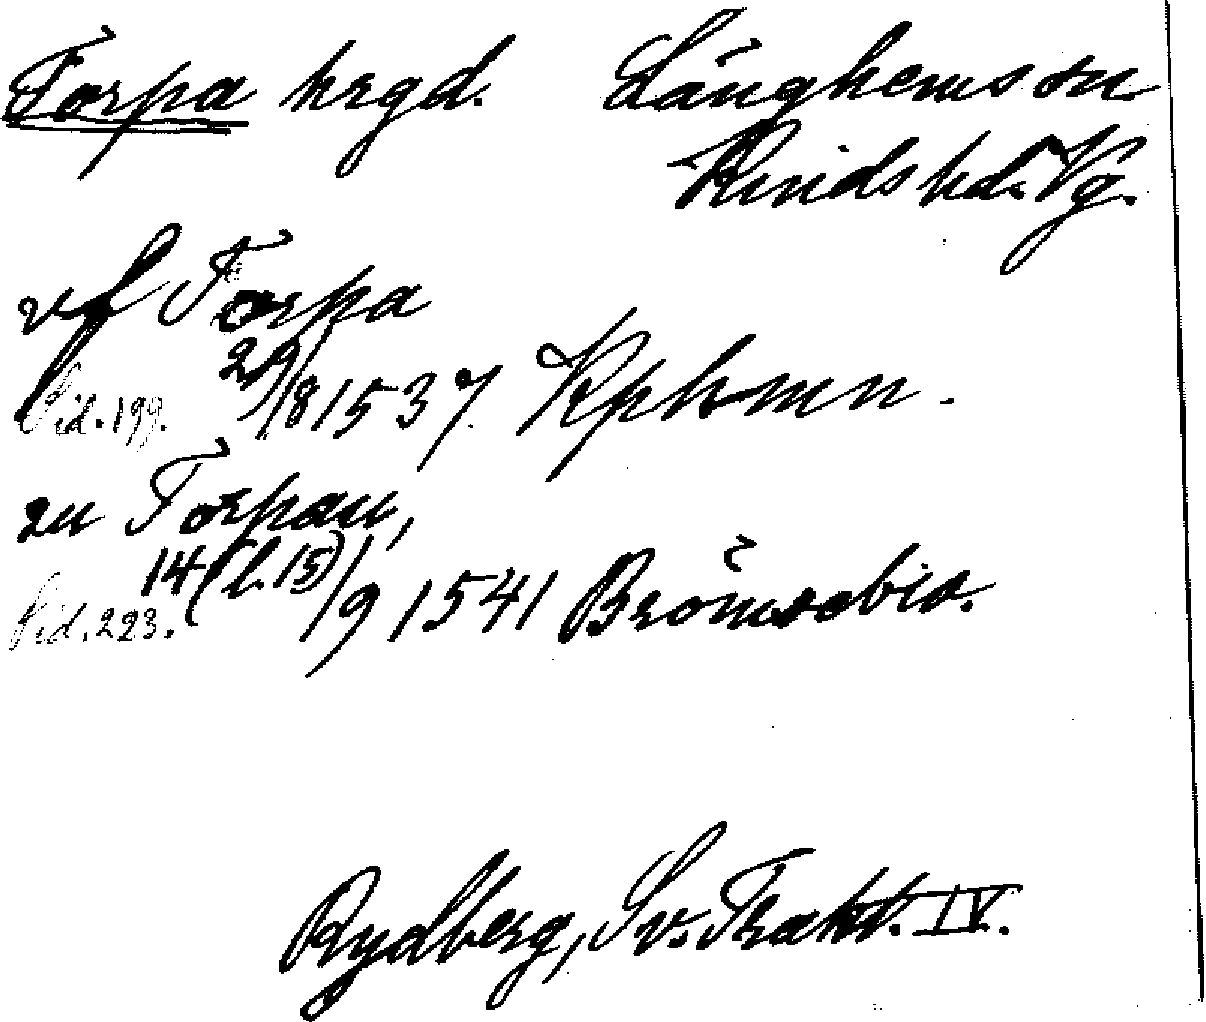 Torpa hrgd. Länghems sn
Kinds hd. Vg.
vf Torpa
Sid. 199. 29/8 1537 Kphmn.
zu Torpau,
Sid. 223. 14 (l. 15)/9 1541 Brömsebro.
Rydberg, Sv. Trakt. IV.